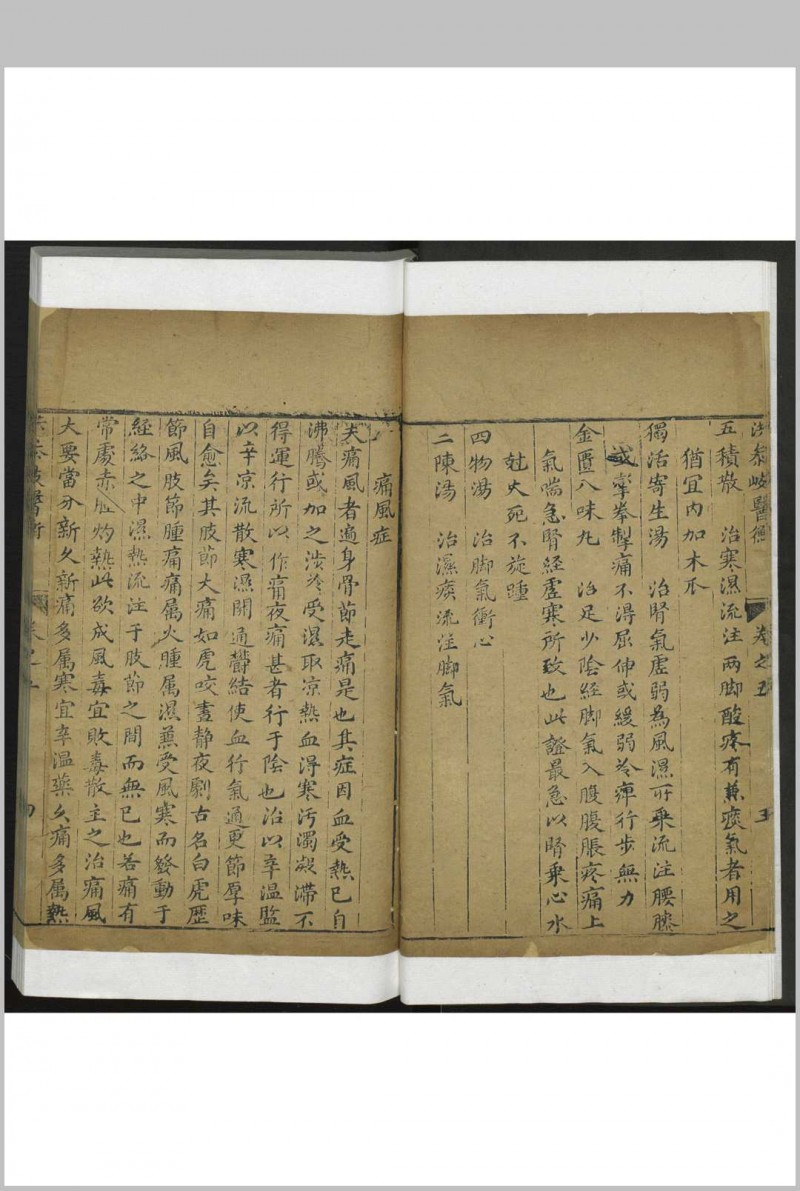 岐醫
卷之五
五
五積散　治寒濕流注兩脚酸疼有兼痰氣者用之
猶宜內加木瓜
獨活寄生湯　治腎氣虛弱爲風濕所乘流注腰膝
或攣拳掣痛不得屈伸或緩弱冷痺行步無力
金匱八味丸　治足少陰經脚氣入腹腹脹疼痛上
氣喘急腎經虛寒所致也此證最急以腎乘心水
尅火死不旋踵
四物湯　治脚氣衝心
二陳湯　治濕痰流注脚氣
痛風症
夫痛風者遍身骨節走痛是也其症因血受熱已自
沸騰或加之涉冷受濕取凉熱血得寒污濁凝滯不
得運行所以作痛夜痛甚者行于陰也治以辛溫監
以辛凉流散寒濕開通鬱結使血行氣通更節厚味
自愈矣其肢節大痛如虎咬晝靜夜劇古名白虎歷
節風肢節腫痛痛属火腫属濕兼受風寒而發動于
經絡之中濕熱流注于肢節之間而無已也若痛有
常處赤腫灼熱此欲成風毒宜敗毒散主之治痛風
大要當分新久新痛多属寒宜辛溫藥久痛多属熱